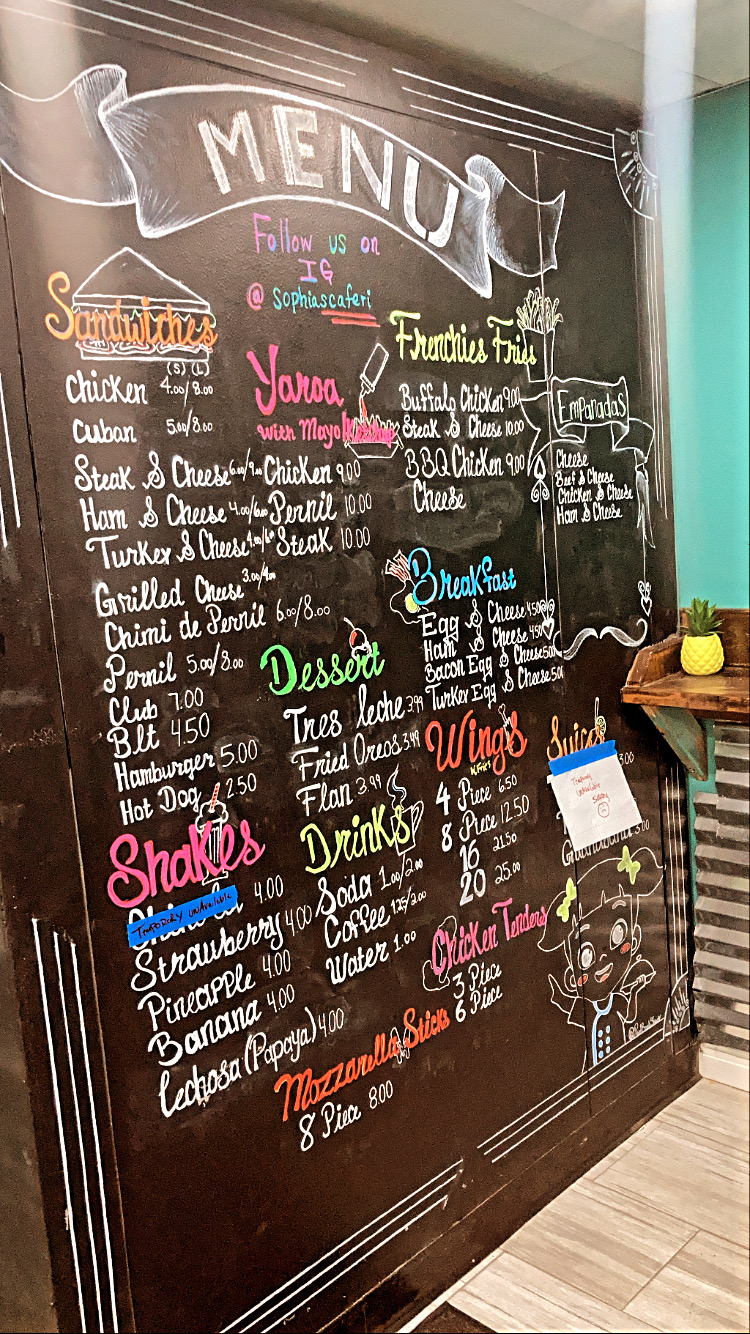 MENU
Follow us on
IG
@sophiascaferi
Sandwiches
(S) (L)
Chicken 4.00/8.00
Cuban 5.00/8.00
Steak & Cheese
Ham & Cheese 4.00/6.00
Turkey & Cheese
Grilled Cheese 3.00/4.00
Chimi de Pernil 6.00/8.00
Pernil 5.00/8.00
Club 7.00
Blt 4.50
Hamburger 5.00
Hot Dog 2.50
Shakes
TEMPORARY UNAVAILABLE
4.00
Strawberry 4.00
Pineapple 4.00
Banana 4.00
Lechosa (Papaya) 4.00
Yaroa
with Mayo/Ketchup
Chicken 9.00
Pernil 10.00
Steak 10.00
Dessert
Tres leche 3.99
Fried Oreos 3.49
Flan 3.99
Drinks
Soda 1.00/2.00
Coffee 1.25/2.00
Water 1.00
Mozzarella Sticks
8 Piece 8.00
Frenchies Fries
Buffalo Chicken 9.00
Steak & Cheese 10.00
BBQ Chicken 9.00
Cheese
Breakfast
Egg & Cheese 4.50
Ham & Cheese 4.50
Bacon Egg & Cheese
Turkey Egg & Cheese
Wings
W. Fries
4 Piece 6.50
8 Piece 12.50
16 21.50
20 25.00
Chicken Tenders
3 Piece
6 Piece
Empanadas
Cheese
Beef & Cheese
Chicken & Cheese
Ham & Cheese
Juices
3.00
Temporary
unavailable
Sorry
3.00